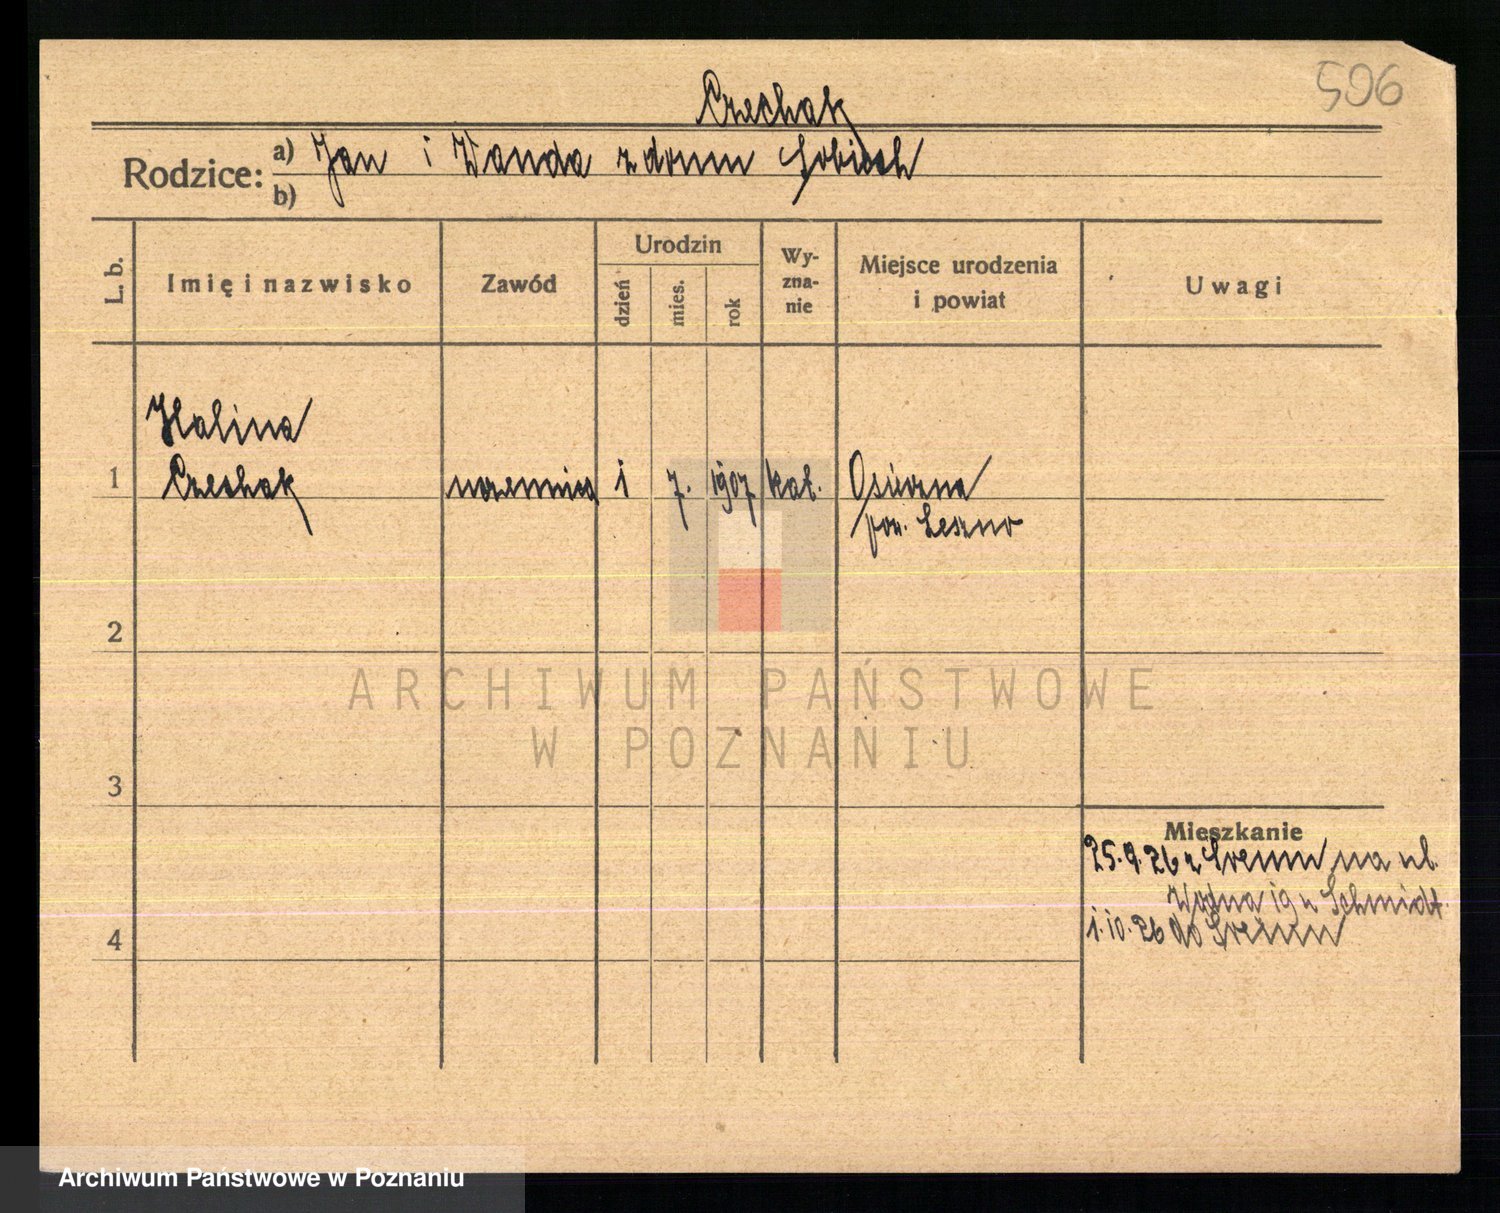 596
Czechak
Rodzice: a) Jan i Wanda z domu
b)
L. b.
Imię i nazwisko
Zawód
Urodzin
dzień
mies.
rok
Wy-
zna-
nie
Miejsce urodzenia
i powiat
Uwagi
Halina
1 Czechak uczennica 1 7. 1907 kat. Osieczna
pow. Leszno
2
ARCHIWUM PAŃSTWOWE
W POZNANIU
3
Mieszkanie
25.9.26 z Śremu na ul.
Wodna 19 u Schmidt.
1.10.26 do Śremu
4
Archiwum Państwowe w Poznaniu